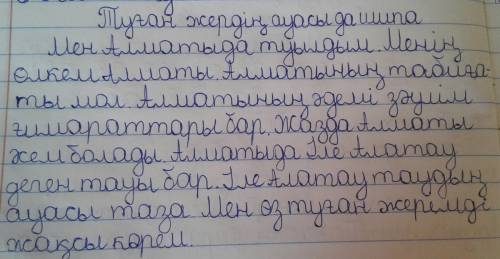 Туған жердің ауасы да шипа
Мен Алматыда туылдым. Менің
өлкем Алматы. Алматының табиға-
ты мол. Алматының әдемі зәуім
ғимараттары бар. Жазда Алматы
жем болады. Алматыда Іле Алатау
деген тауы бар. Іле Алатау таудың
ауасы таза Мен өз туған жерімді
жақсы көрем.